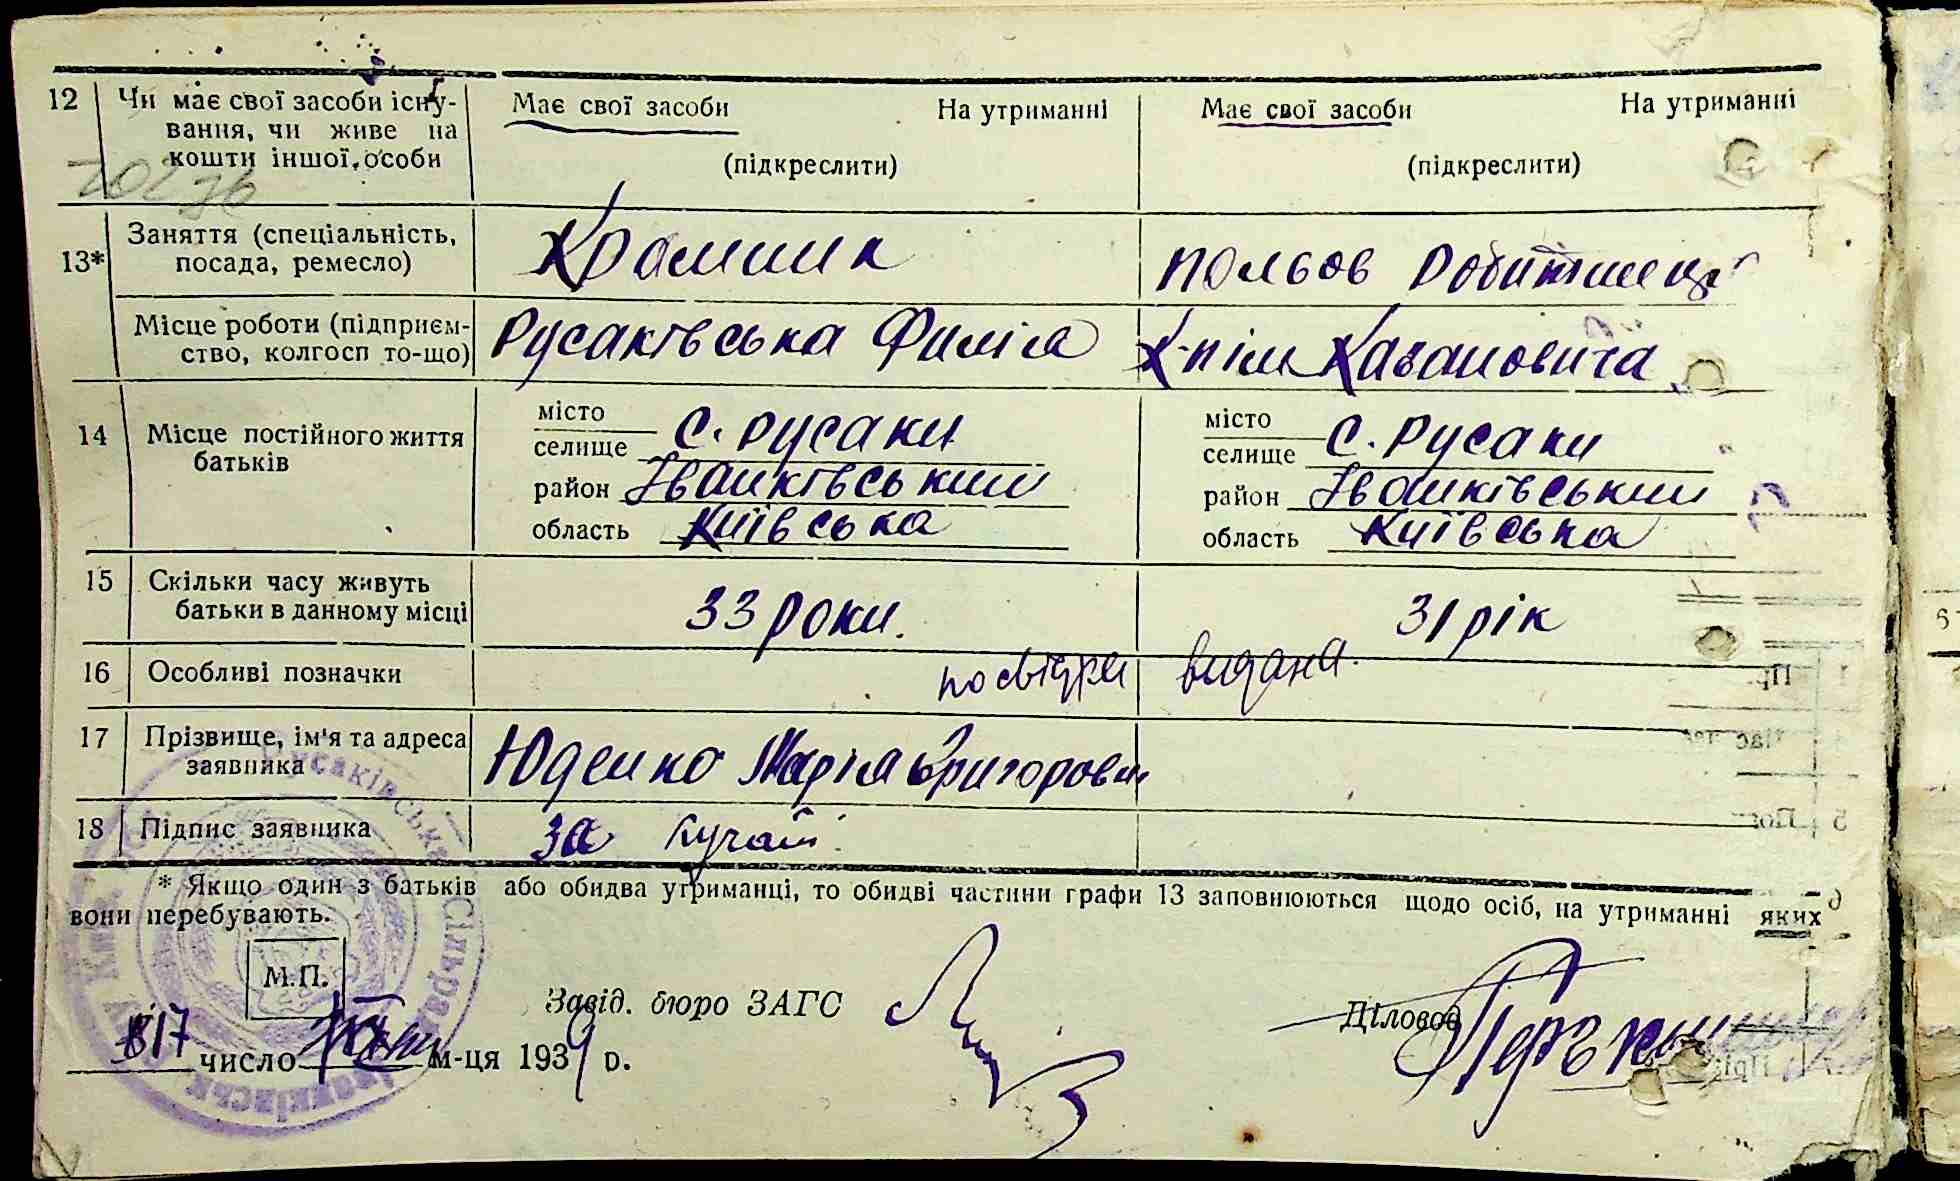 12 Чи має свої засоби існу- Має свої засоби На утриманні Має свої засоби На утриманні
вання, чи живе на
кошти іншої особи (підкреслити) (підкреслити)
13* Заняття (спеціальність,
посада, ремесло) Крамник польов робітниця
Місце роботи (підприєм-
ство, колгосп то-що) Русаківська Филія К-п ім Кагановича
14 Місце постійного життя
батьків
місто
селище с. Русаки
район Іванківський
область Київська
місто
селище с. Русаки
район Іванківський
область Київська
15 Скільки часу живуть
батьки в данному місці 33 роки. 31 рік
16 Особливі позначки видана.
17 Прізвище, ім'я та адреса
заявника Юденко Марія Григоровн
18 Підпис заявника за
* Якщо один з батьків або обидва утриманці, то обидві частини графи 13 заповнюються щодо осіб, на утриманні яких
вони перебувають.
М.П.
Завід. бюро ЗАГС Діловод
17 число м-ця 1939 р.